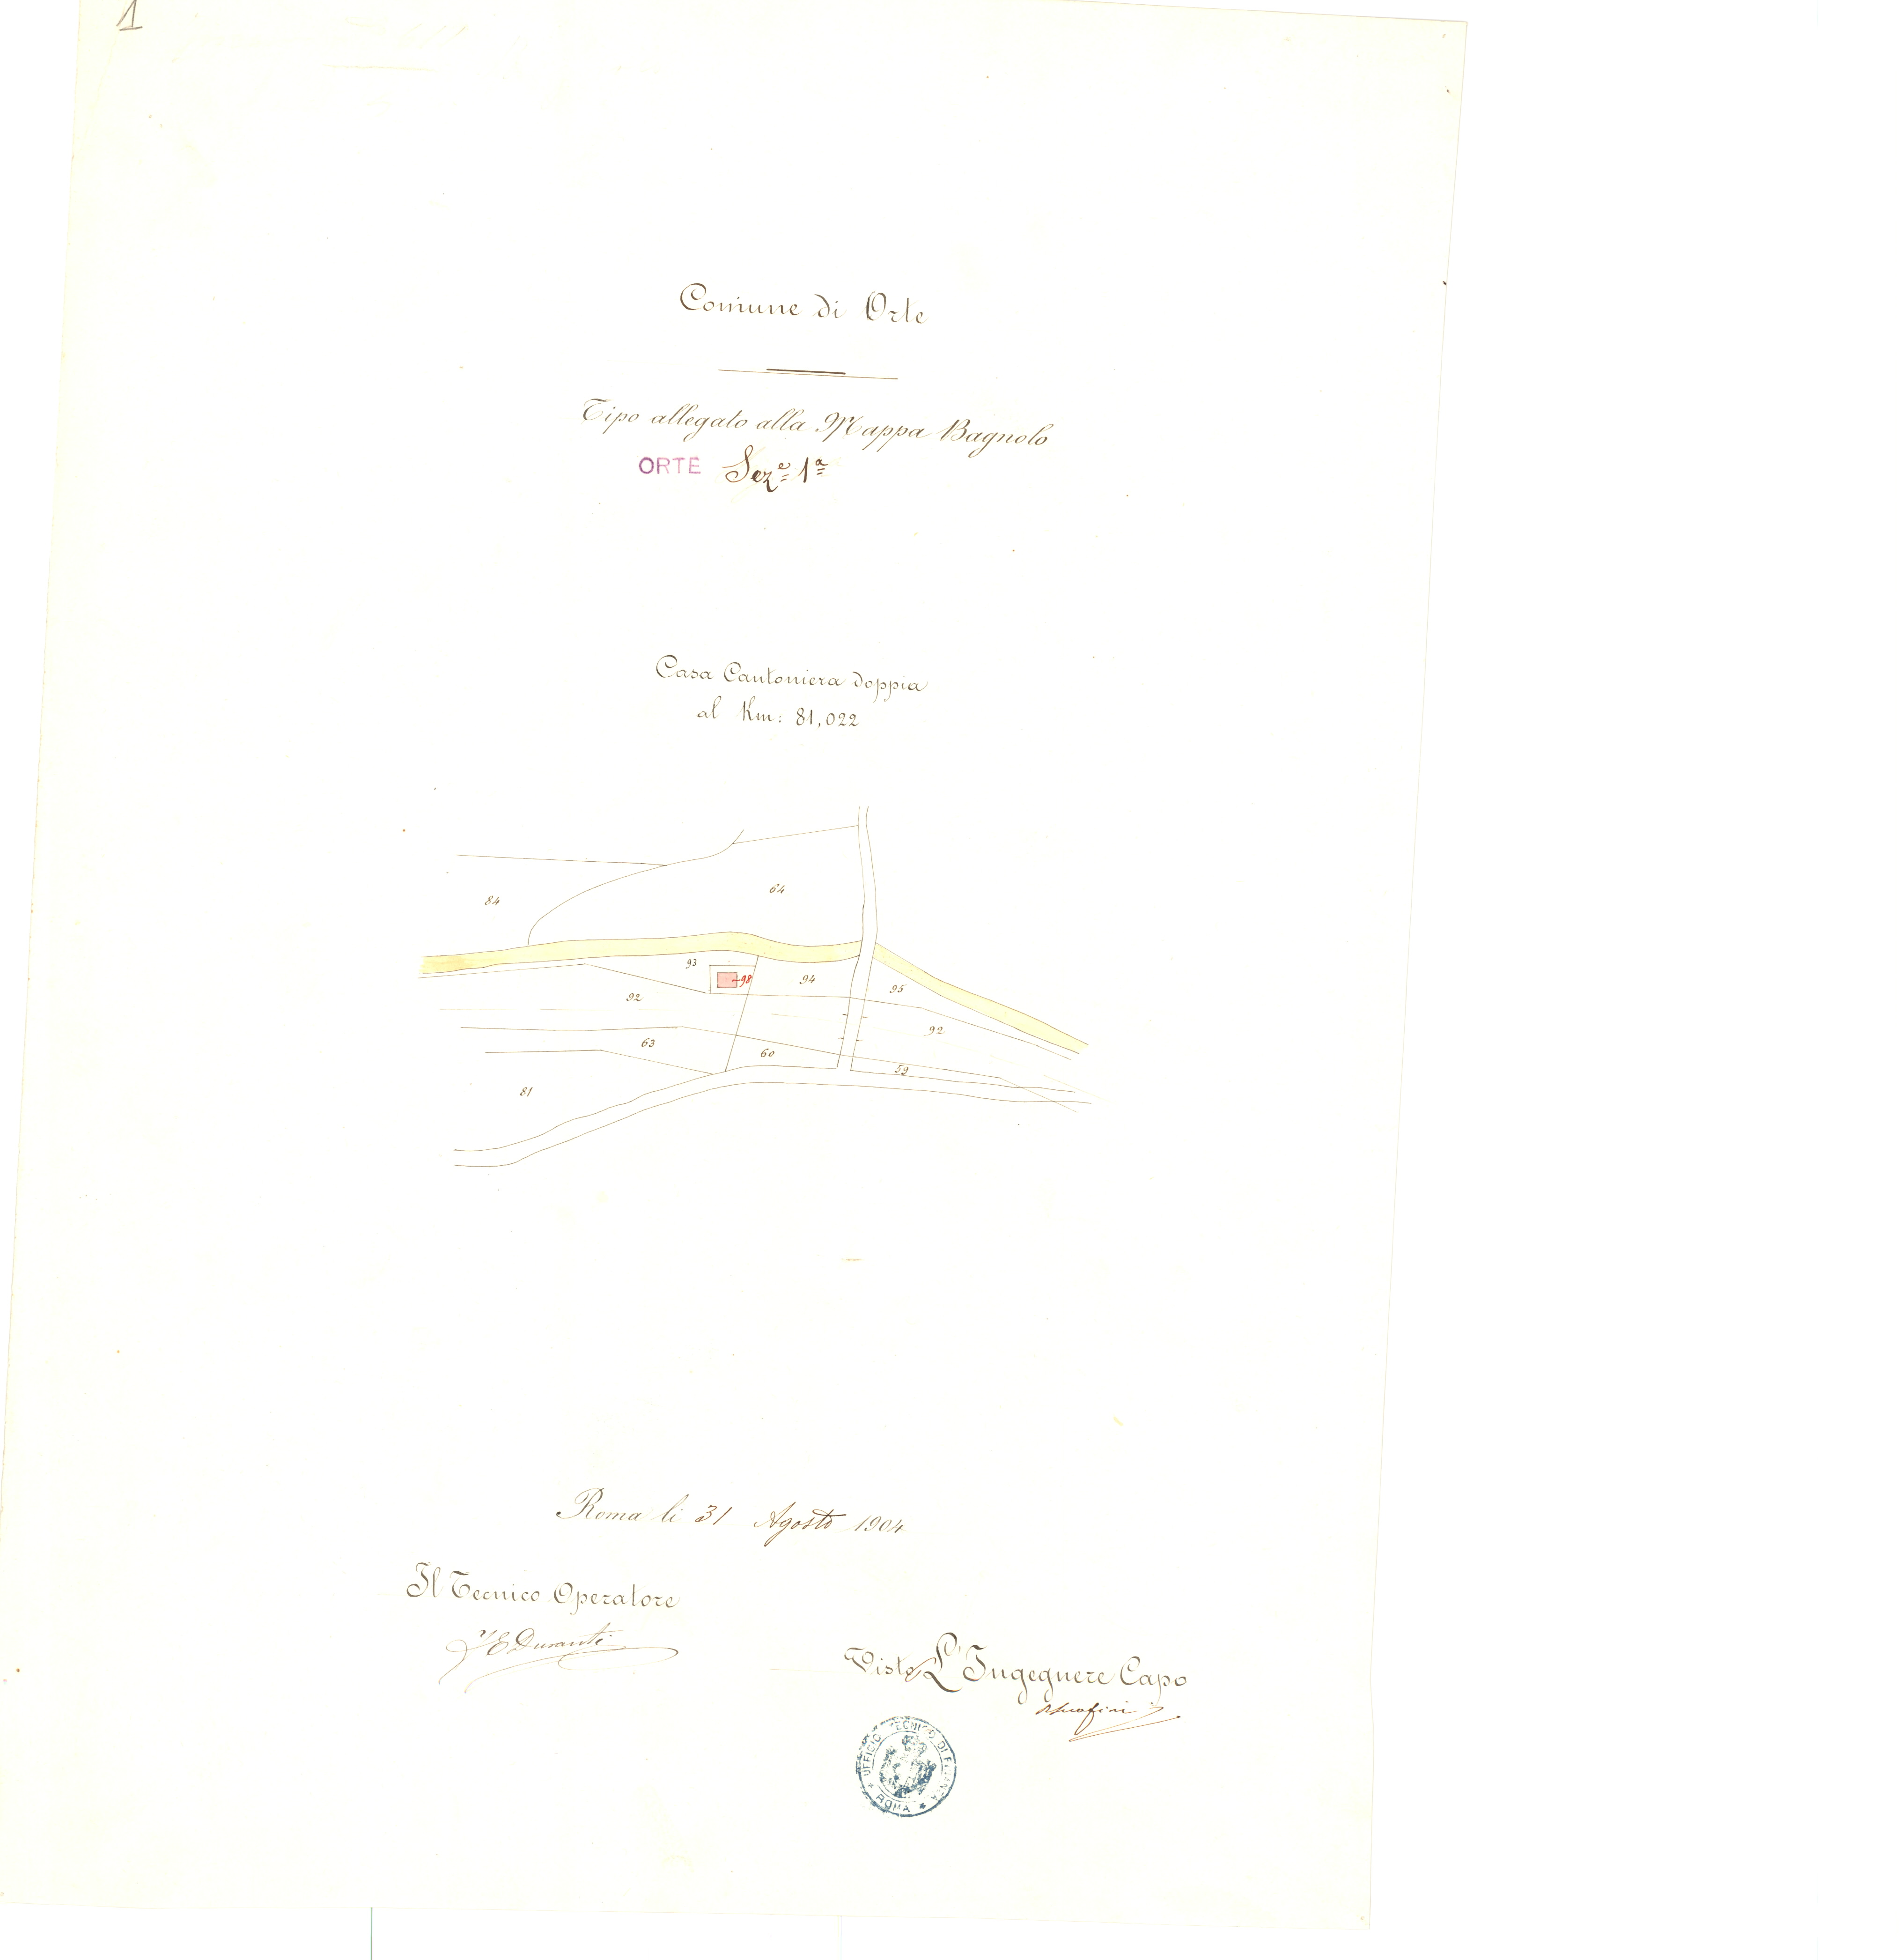 1
Comune di Orte
Tipo allegato alla Mappa Bagnolo
ORTE Sezᵉ 1ª
Casa Cantoniera doppia
al Km: 81,022
64
84
93
98
94
95
92
92
63
60
59
81
Roma li 31 Agosto 1904
Il Tecnico Operatore
Duranti
Visto, L'Ingegnere Capo
UFFICIO TECNICO DI FINANZA
ROMA